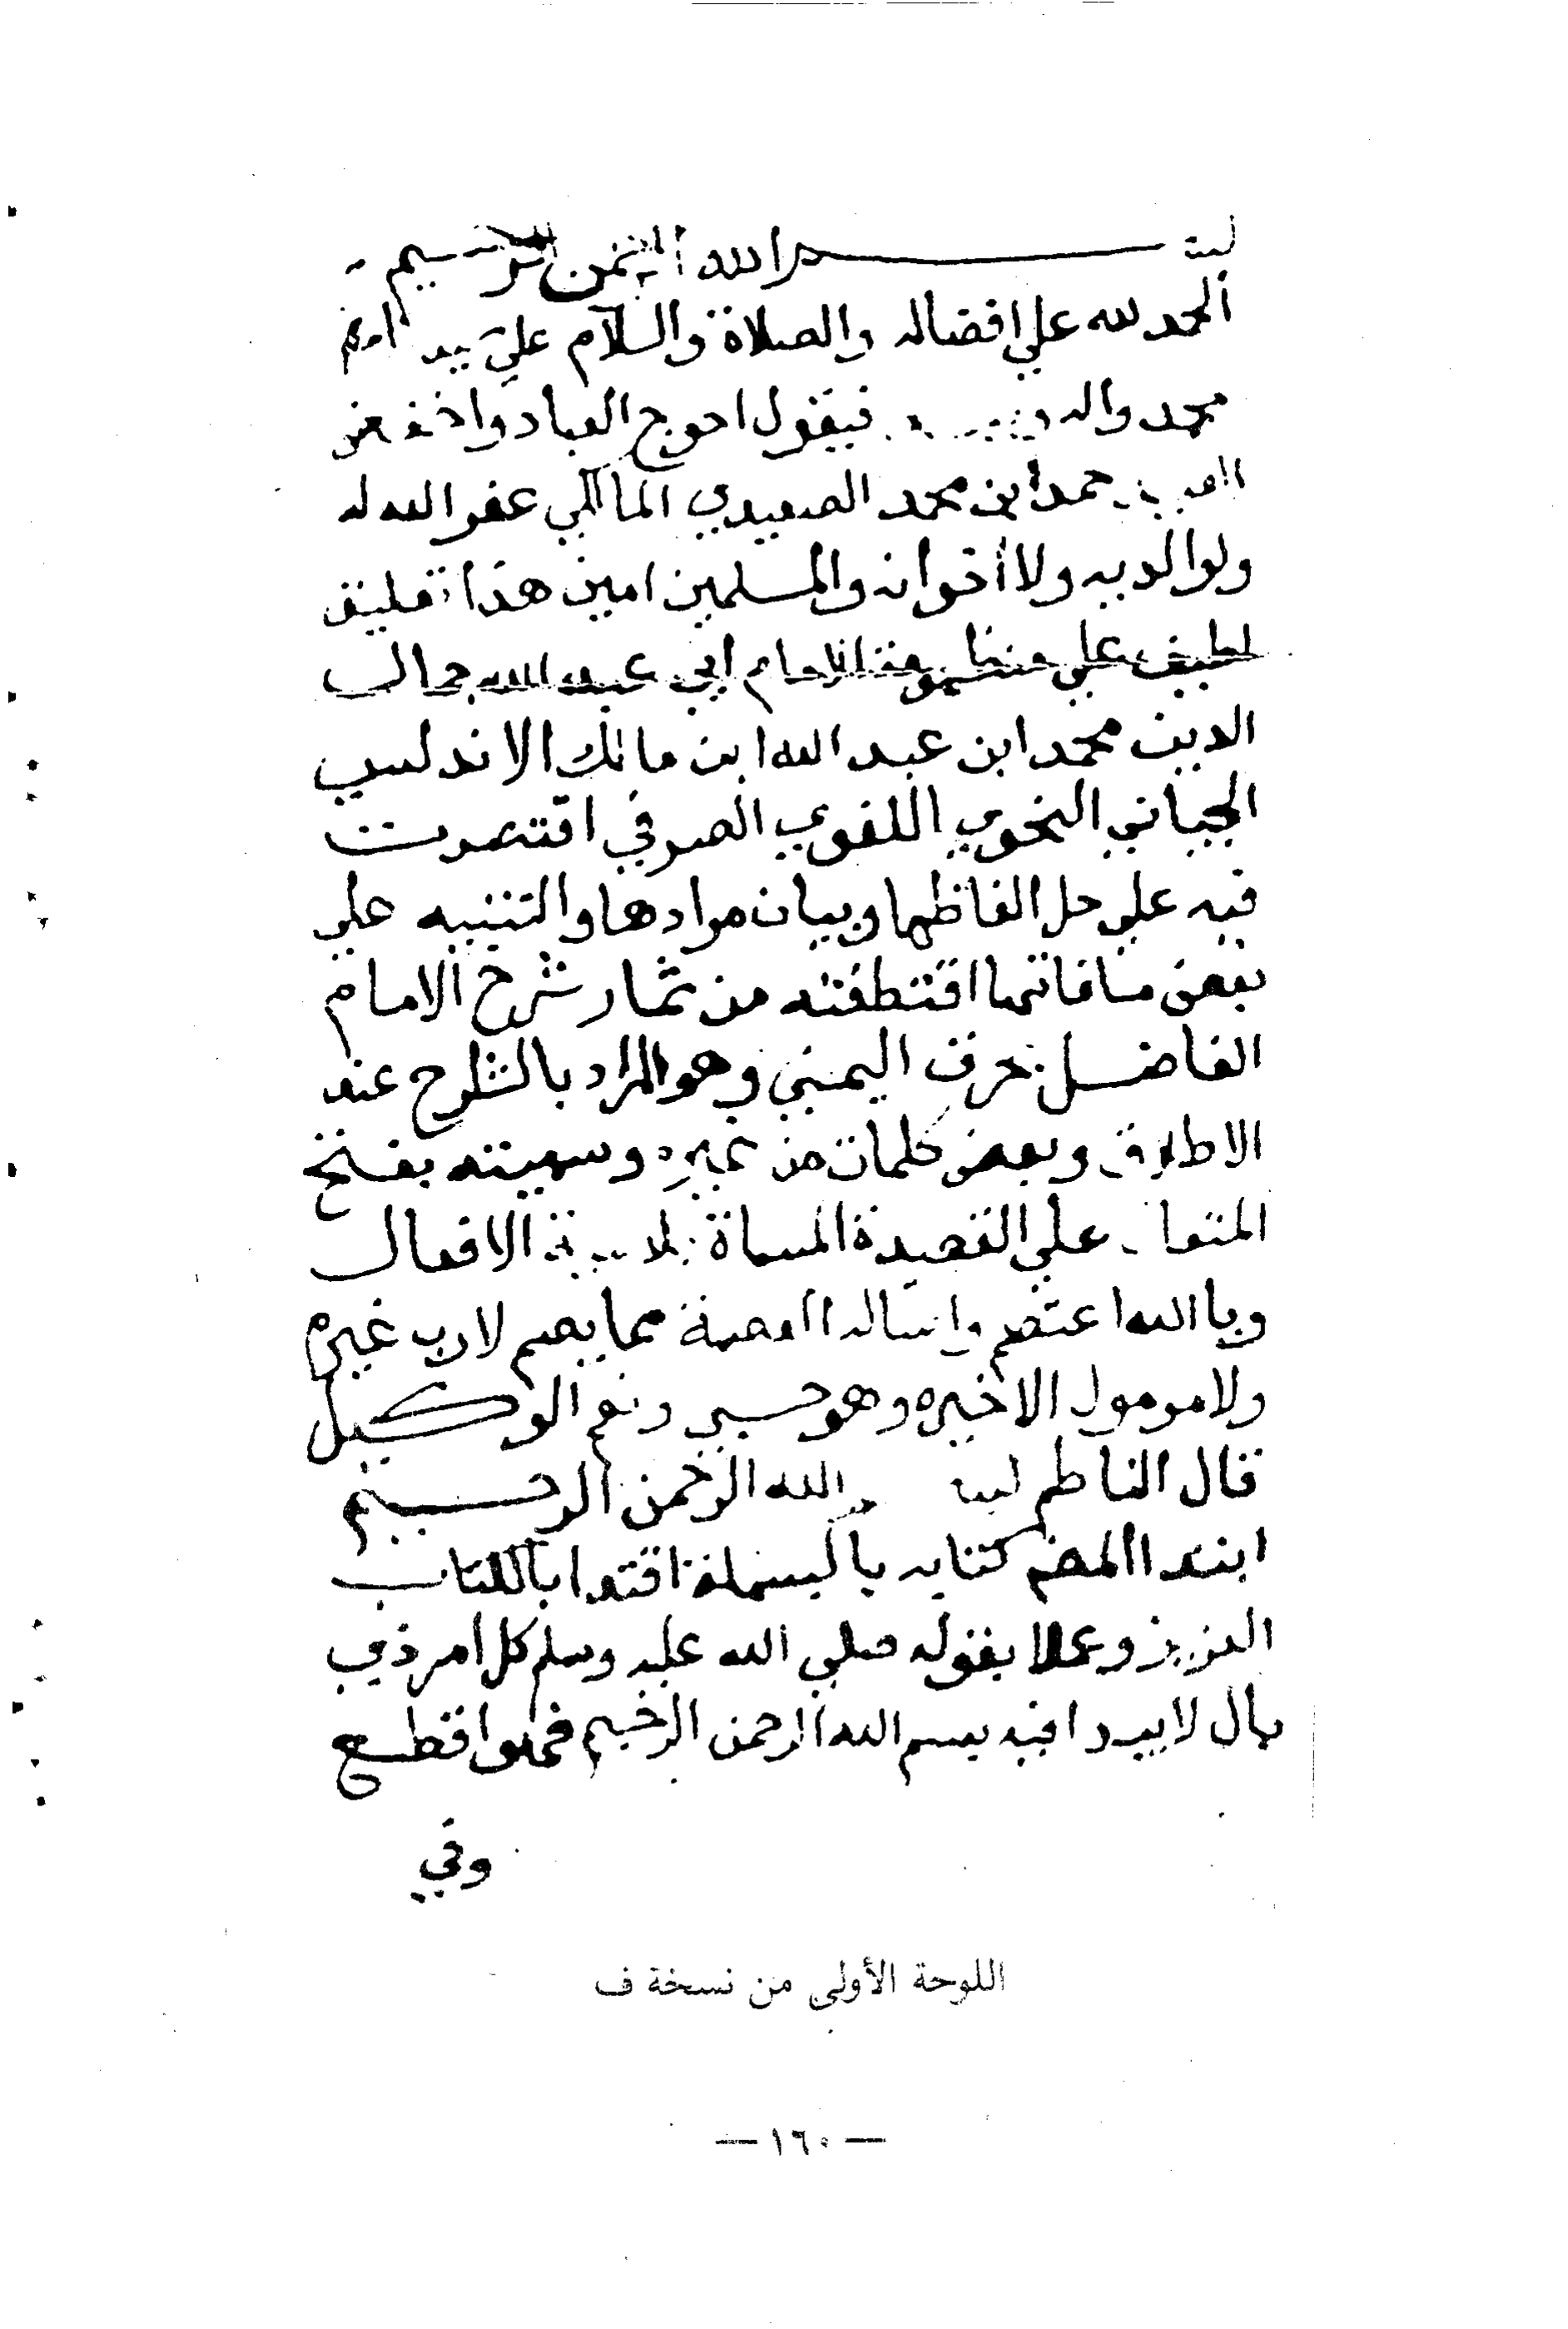 بسم الله الرحمن الرحيم
الحمد لله علي افضاله والصلاة والسلام علي
محمد واله فيقول احوج العباد
حمد ابن محمد الصعيدي المالكي عفر الله له
ولوالديه ولاأخوانه والمسلمين امين هذا تعليق
لطيف علي منظومة الامام ابي عبد الله جمال
الدين محمد ابن عبد الله ابن مالك الاندلسي
الجياني النحوي اللغوي الصرفي اقتصرت
فيه علي حل الفاظها وبيان مرادها والتنبيه علي
بعض اقتطفته من ثمار شرح الامام
الفاضل بحرق اليمني وهو المراد بالشارح عند
الاطلاق وبعض كلمات من غيره وسميته بفتح
المتعال علي القصيدة المسماة بلامية الافعال
وباالله اعتصم واساله العصمة مما يصم لارب غيره
ولا مومول الاخيره وهو حسبي ونعم الوكيل
قال الناظم بسم الله الرحمن الرحيم
ابتدا المصنف كتابه بالبسملة اقتدا باالكتاب
العزيز وعملا بقوله صلي الله عليه وسلم كل امر ذي
بال لا يبدا فيه ببسم الله الرحمن الرحيم فهوا قطع
وفي
اللوحة الأولى من نسخة ف
— ١٦٠ —